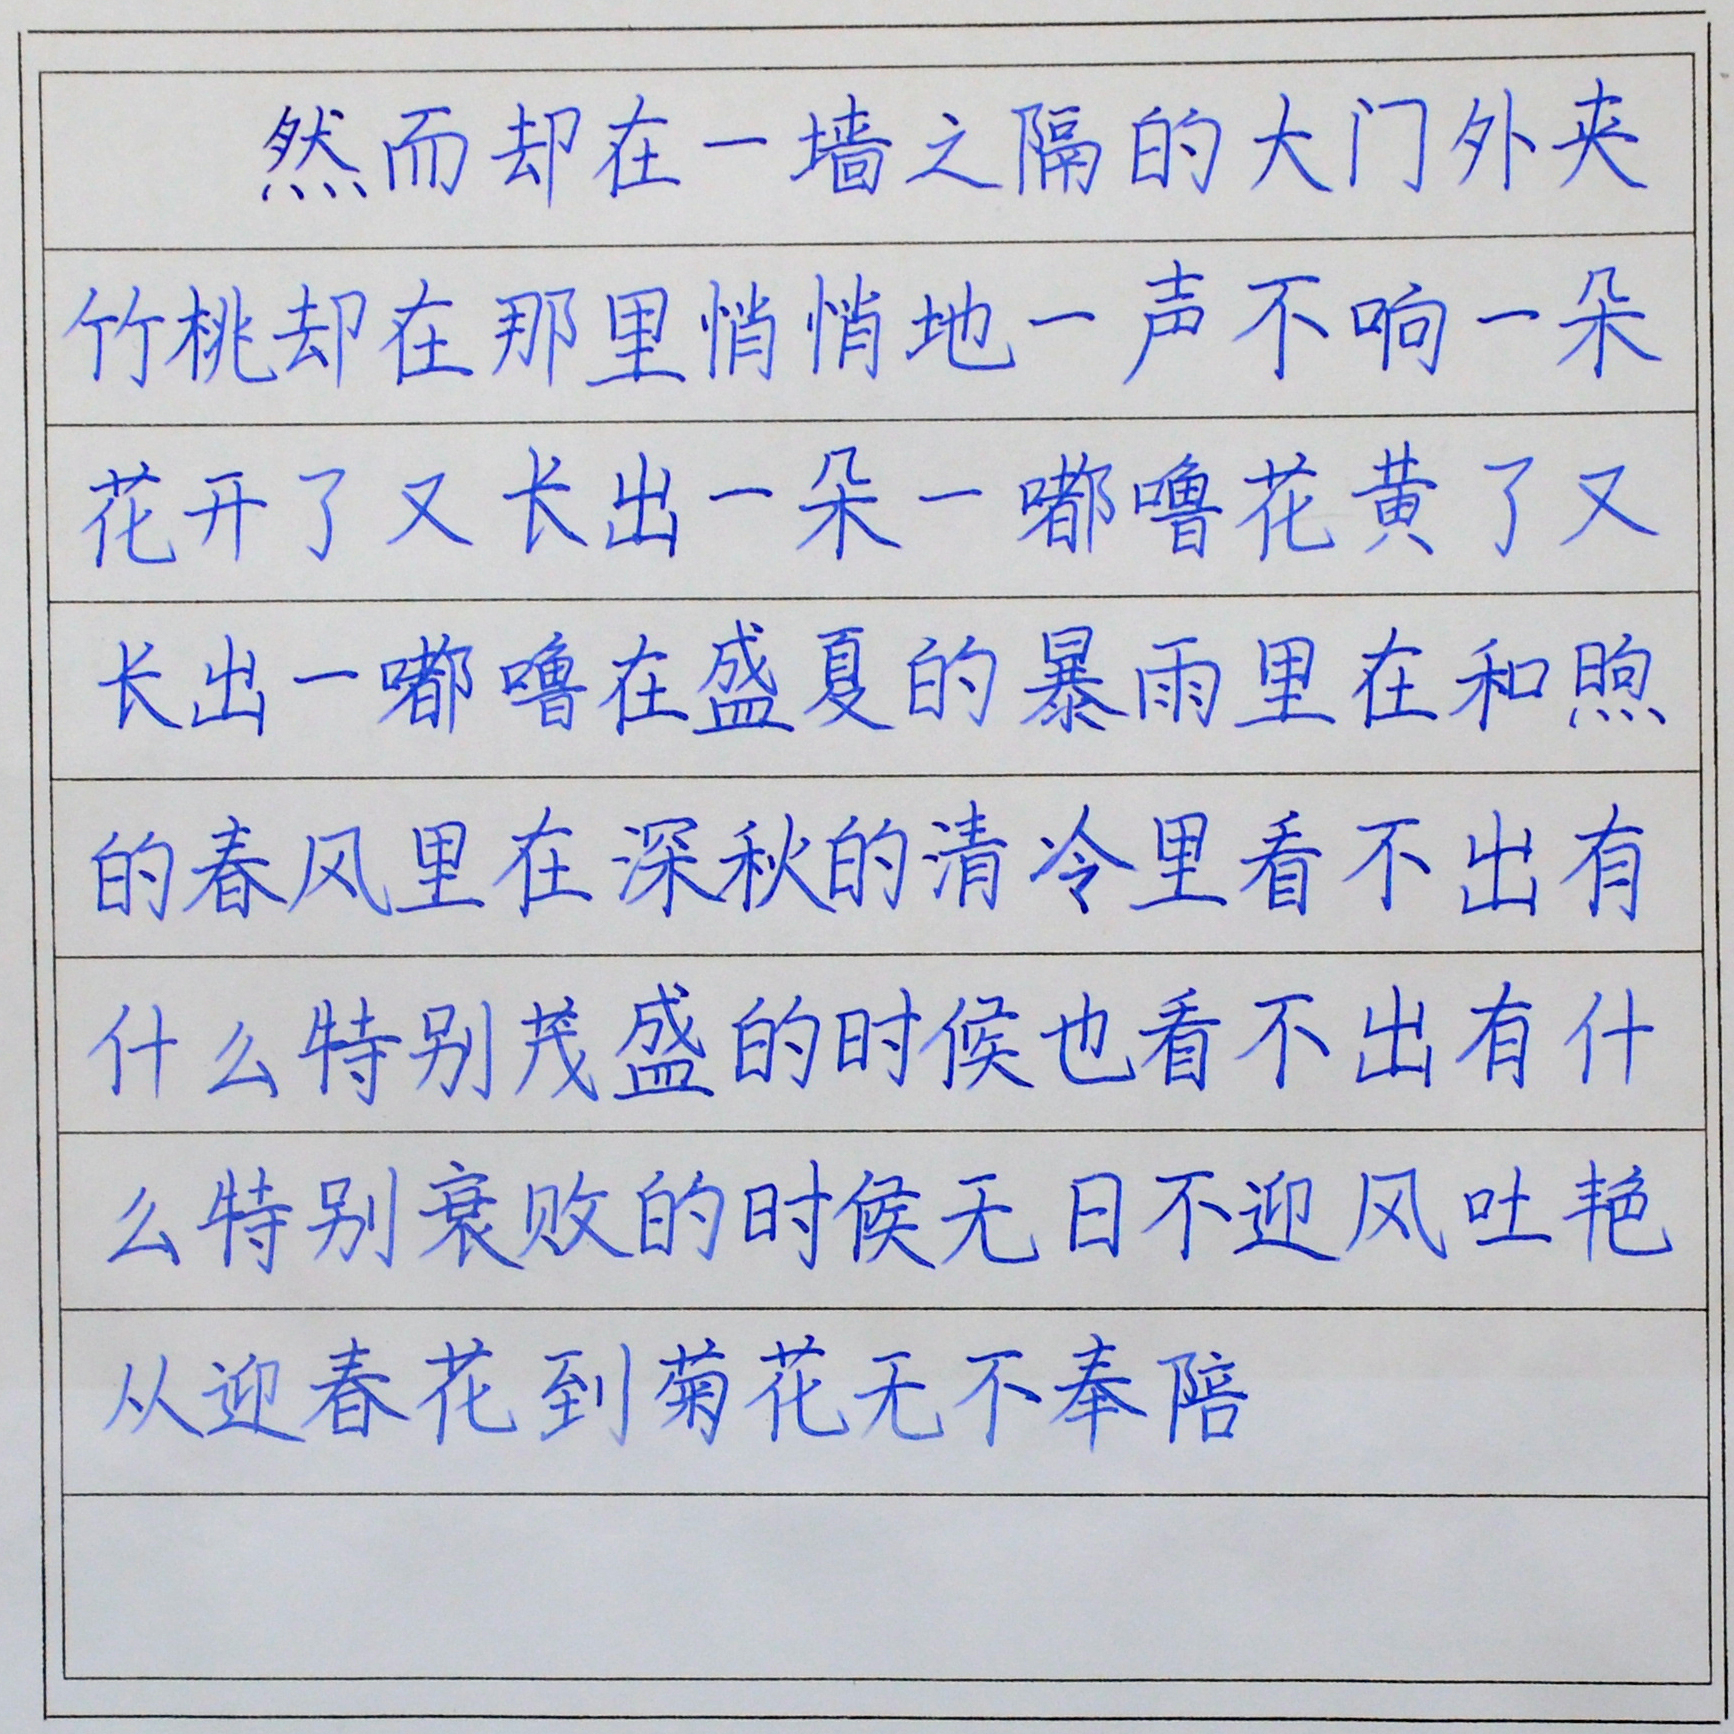 然而却在一墙之隔的大门外夹
竹桃却在那里悄悄地一声不响一朵
花开了又长出一朵一嘟噜花黄了又
长出一嘟噜在盛夏的暴雨里在和煦
的春风里在深秋的清冷里看不出有
什么特别茂盛的时候也看不出有什
么特别衰败的时候无日不迎风吐艳
从迎春花到菊花无不奉陪